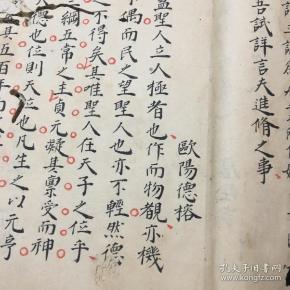 吾試詳言夫進脩之事
歐陽德榕
盖聖人立人極者也作而物覩亦機
不偶而民之望聖人也亦不輕然德
之不得矣其唯聖人在天子之位乎
綱五常之主貞元凝其稟受而神
德也位則天位也凡生之以元亨
其五百年
孔夫子旧书网